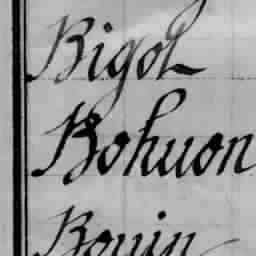 Bigot
Bohuon
Bouin